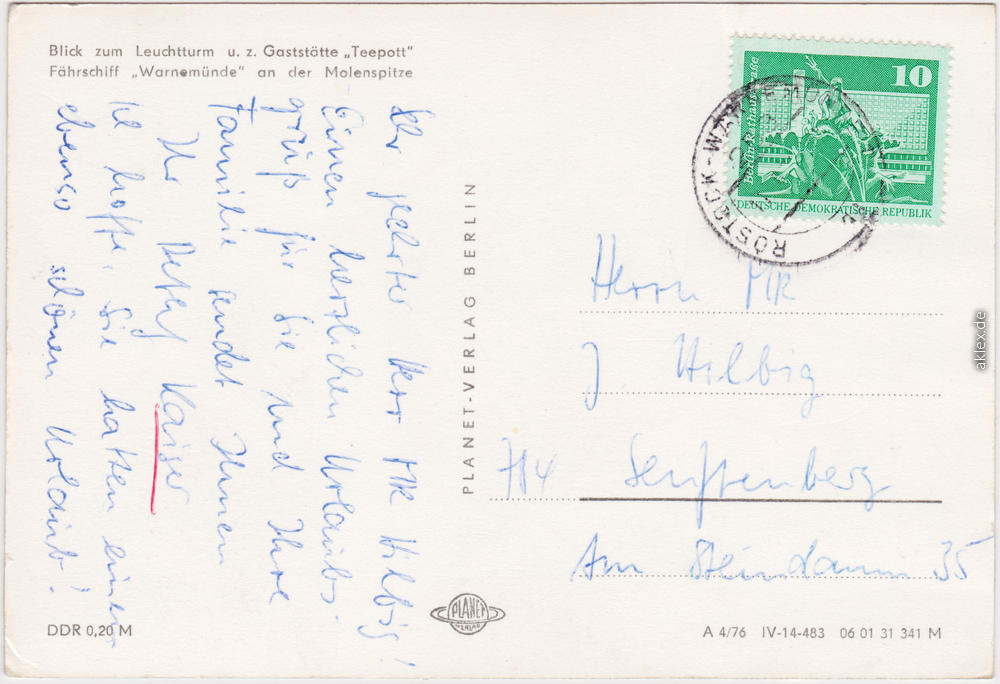 Blick zum Leuchtturm u. z. Gaststätte „Teepott"
Fährschiff „Warnemünde" an der Molenspitze
Sehr geehrter Herr MR Hilbig!
Einen herzlichen Urlaubs-
gruß für Sie und Ihre
Familie sendet Ihnen
Ihr Detlef Kaiser
Ich hoffe, Sie hatten einen
ebenso schönen Urlaub!
PLANET-VERLAG BERLIN
10
Berlin, Rathausstraße
DEUTSCHE DEMOKRATISCHE REPUBLIK
ROSTOCK-WARNEMÜNDE
Herrn MR
J. Hilbig
784 Senftenberg
Am Steindamm 35
PLANET
VERLAG
DDR 0,20 M
A 4/76 IV-14-483 06 01 31 341 M
aklex.de